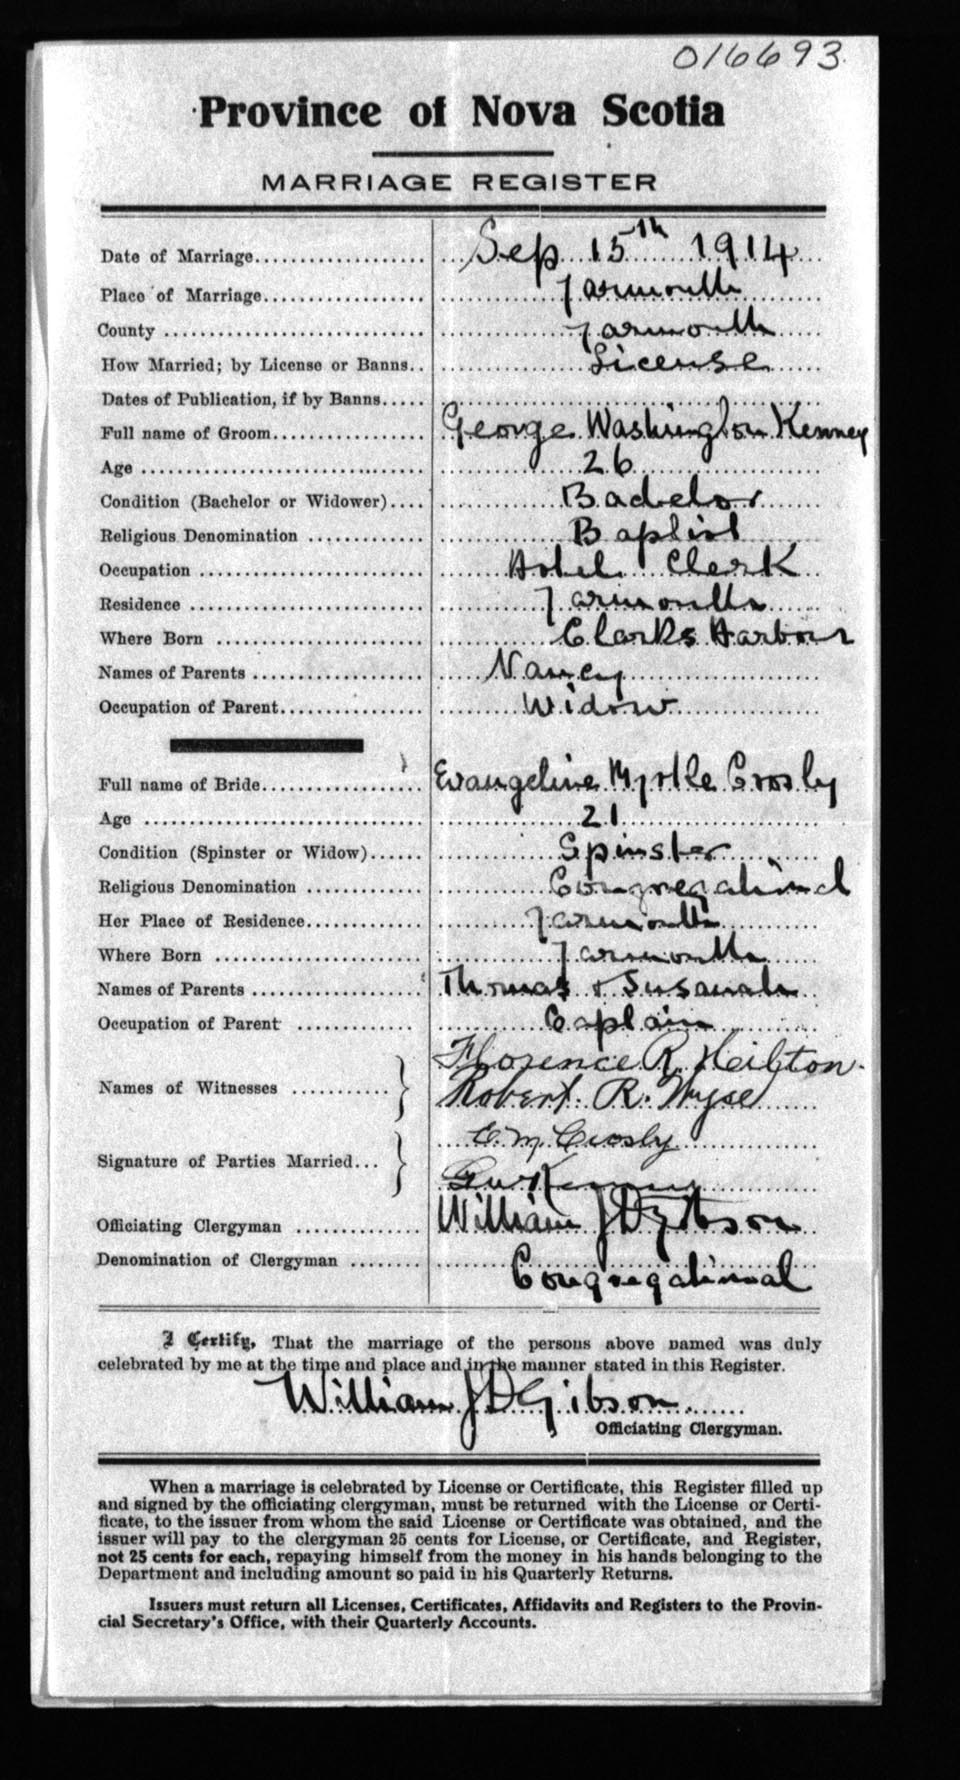 016693
Province of Nova Scotia
MARRIAGE REGISTER
Date of Marriage Sep 15th 1914
Place of Marriage Yarmouth
County Yarmouth
How Married; by License or Banns License
Dates of Publication, if by Banns
Full name of Groom George Washington Kenney
Age 26
Condition (Bachelor or Widower) Bachelor
Religious Denomination Baptist
Occupation Hotel Clerk
Residence Yarmouth
Where Born Clarks Harbour
Names of Parents Nancy
Occupation of Parent Widow
Full name of Bride Evangeline Myrtle Crosby
Age 21
Condition (Spinster or Widow) Spinster
Religious Denomination Congregational
Her Place of Residence Yarmouth
Where Born Yarmouth
Names of Parents Thomas & Susanah
Occupation of Parent Captain
Florence R.
Names of Witnesses Robert R. Wyse
E M Crosby
Signature of Parties Married
G W Kenney
Officiating Clergyman William J D Gibson
Denomination of Clergyman Congregational
I Certify, That the marriage of the persons above named was duly
celebrated by me at the time and place and in the manner stated in this Register.
William J D Gibson
Officiating Clergyman.
When a marriage is celebrated by License or Certificate, this Register filled up
and signed by the officiating clergyman, must be returned with the License or Certi-
ficate, to the issuer from whom the said License or Certificate was obtained, and the
issuer will pay to the clergyman 25 cents for License, or Certificate, and Register,
not 25 cents for each, repaying himself from the money in his hands belonging to the
Department and including amount so paid in his Quarterly Returns.
Issuers must return all Licenses, Certificates, Affidavits and Registers to the Provin-
cial Secretary's Office, with their Quarterly Accounts.